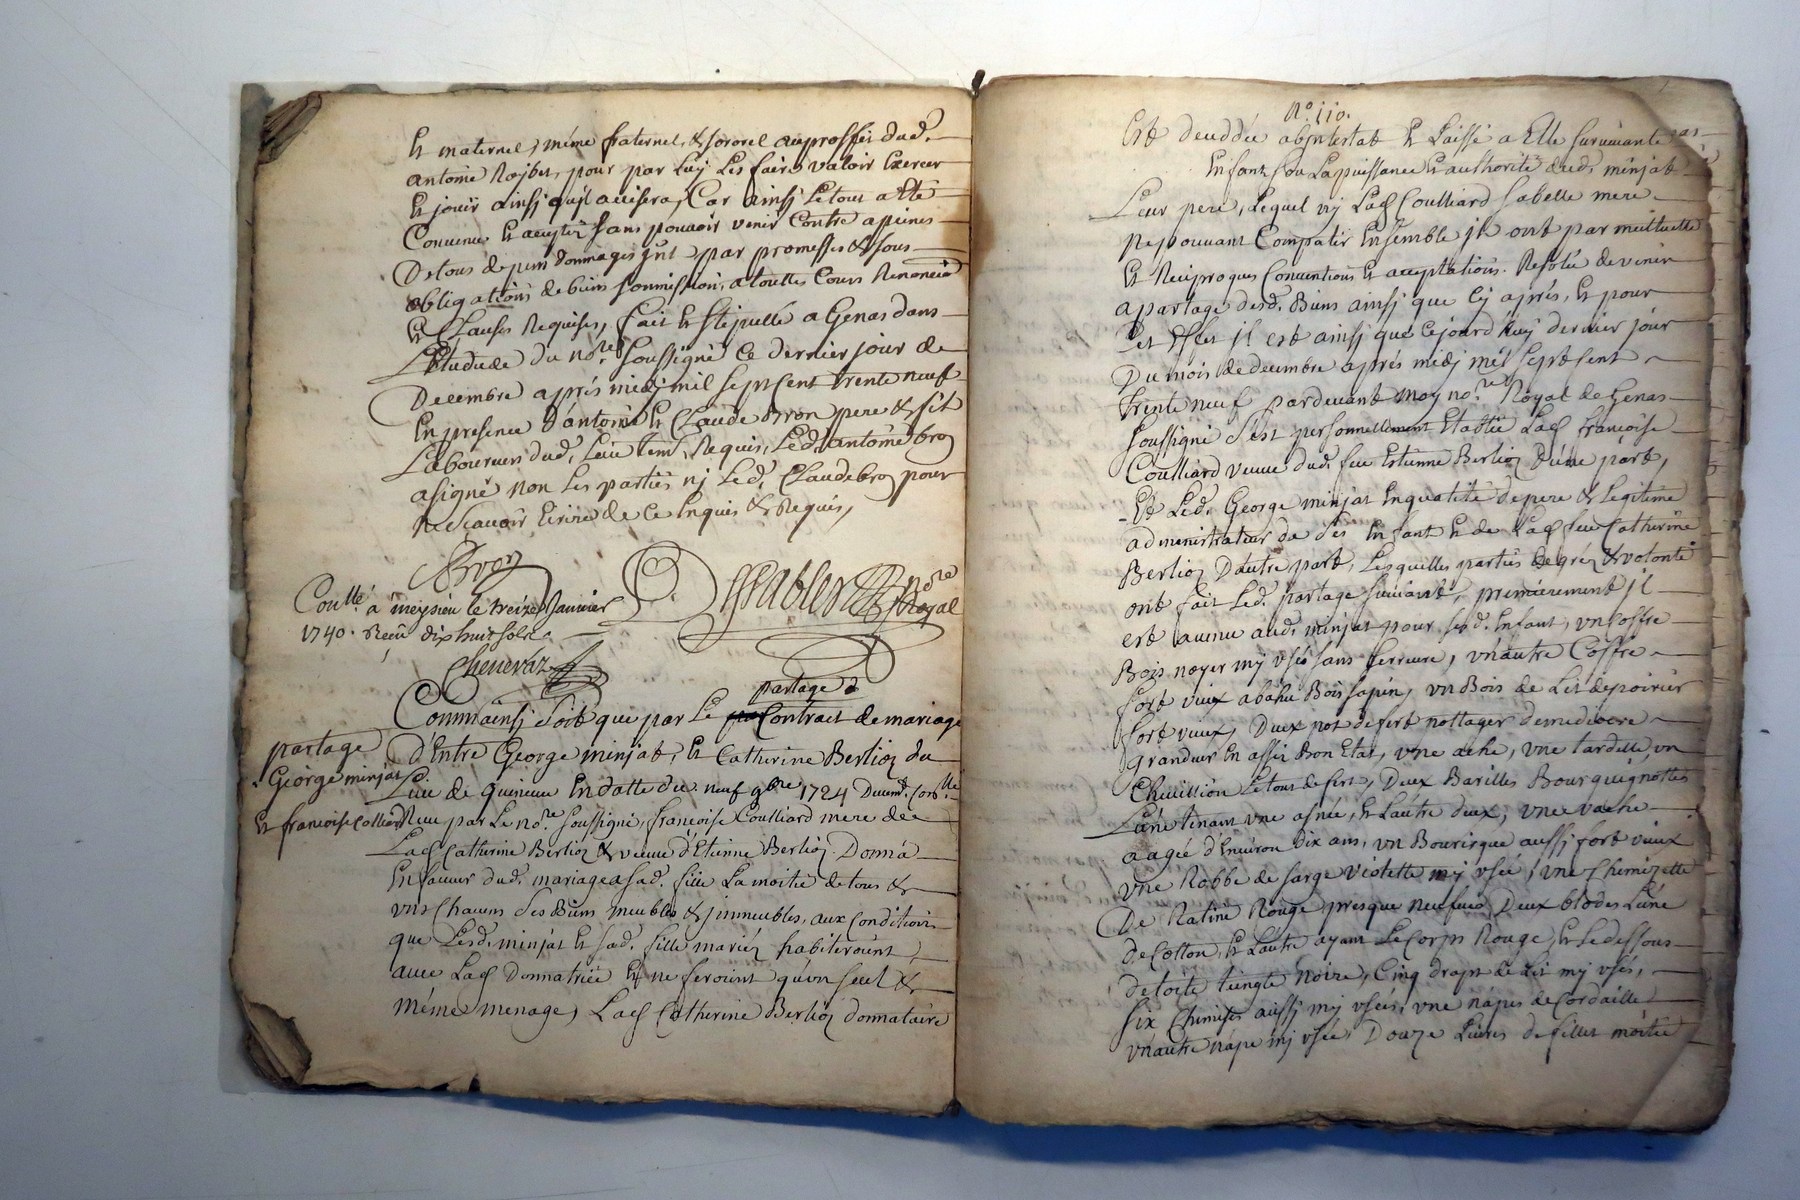 Et maternel, méme fraternel, & sororel au proffit dud.
antoine Rojbet, pour par Luy Les faire valoir Exercer
Et jouir ainsj qu'jl avisera, Car ainsj Le tout a Eté
Convenu Et accepté sans pouvoir venir Contre a peines
De tous depens dommages jnt. par promesses & sous
obligations de biens soumission, a touttes Cours Renonciaon
Et Clauses Requises, fait Et stipullé a Genas dans
L'Etude de du no.re soussigné Ce dernier jour de
Decembre aprés midj mil sept Cent trente neuf
En presence d'antoine Et Claude Bron pere & fils
Laboureurs dud. Lieu tem. Requis, Led. antoine bron
a signé non Les parties nj Led. Claude bron pour
ne Sçavoir Ecrire de Ce Enquis & Requis,
Bron
no.re
Royal
Coullé. à meysieu le treize Janvier
1740. Reçu dix huit sols
Chenevaz
partage
Comm'ainsj soit que par Le Contract de mariage
partage
d'Entre George minjat, Et Catherine Berlioz du
George minjat
Lieu de Quincieu En datte du neuf 9bre 1724
Et francoise Collierd
Receu par Le no.re soussigné, francoise Coulliard mere de
Lad. Catherine Berlioz & veuve d'Etienne Berlioz Donna
En faveur dud. mariage a sad. fille La moitié de tous &
uns Chacuns ses Biens meubles & jmmeubles, aux Conditions
que Lesd. minjat Et sad. fille mariéz habiteroint
avec Lad. Donnatrice Et ne feroient qu'un seul &
méme menage, Lad. Catherine Berlioz donnataire
N.o 110.
Est decedée abjntestat Et Laissé a Elle survivante
Enfant sou La puissance Et authorité dud. minjat
Leur pere, Lequel nj Lad. Coulliard sa belle mere
ne pouvant Compatir Ensemble jls ont par mutuelle
Et Reciproques Conventions Et acceptations. Resolu de venir
a partage desd. Biens ainsj que Cy aprés, Et pour
Cet Effet jl est ainsj que Cejourd'huy dernier jour
Du mois de decembre aprés midj mil sept Cent
trente neuf pardevant moy no.re Royal de Genas
soussigné s'est personnellement Etablie Lad. francoise
Coulliard veuve dud. feu Estienne Berlioz d'une part,
Et Led. George minjat En qualité de pere & Legitime
administrateur de ses Enfant Et de Lad. feue Catherine
Berlioz D'autre part, Lesquelles parties de gréz & volonté
ont fait Led. partage suivant, premierement jl
est avenu aud. minjat pour sesd. Enfant, un Coffre
Bois noyer mj usé sans serrure, un autre Coffre
fort vieux a bahu Bois sapin, un Bois de Lit de poirier
fort vieux, Deux pot de fert pottager de mediocre
grandeur En assés Bon Etat, une ache, une tardelle, un
Chevillion Le tout de fert, Deux Barilles Bourguignottes
L'une tenant une asnée, Et L'autre deux, une vache
aagée d'Environ dix ans, un Bourrisque aussj fort vieux
une Robbe de sarge violette mj usée, une Chemizette
De Ratine Rouge presque neufve, Deux blodes L'une
de Cotton, Et L'autre ayant Le Corps Rouge, Et Le dessous
de toile teingte noire, Cinq draps de Lit mj usés,
six Chemises aussj mj usées, une nâpes de Cordaille
un autre nâpe mj usée, Douze Livres de fillet moitié